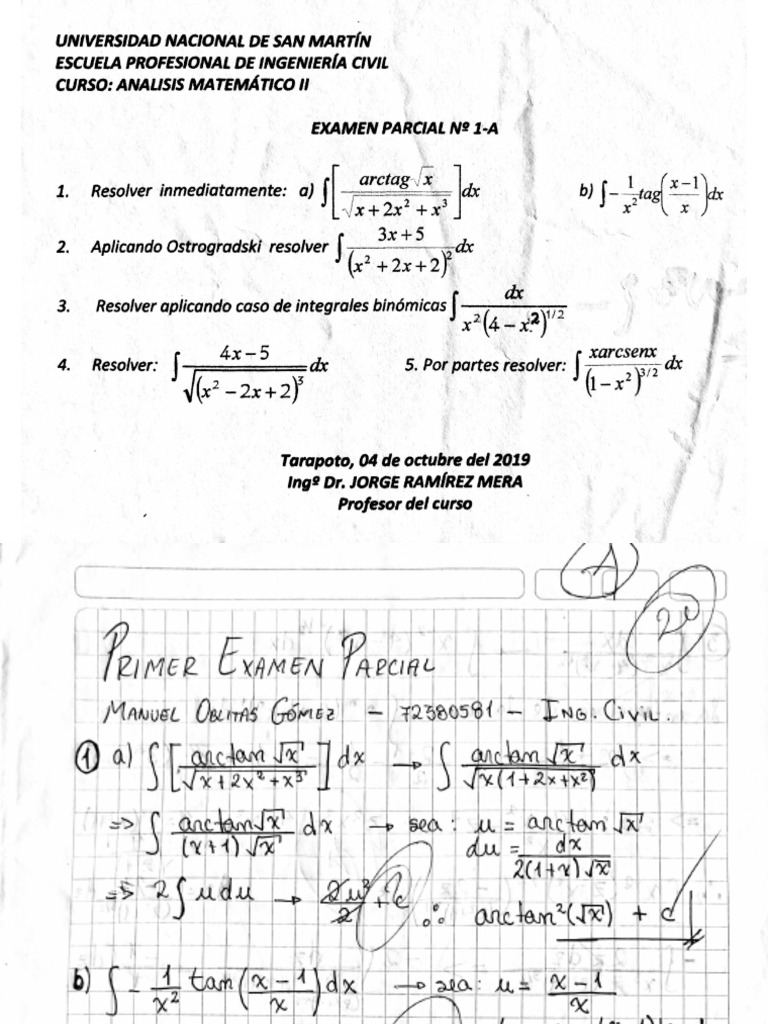 UNIVERSIDAD NACIONAL DE SAN MARTÍN
ESCUELA PROFESIONAL DE INGENIERÍA CIVIL
CURSO: ANALISIS MATEMÁTICO II
EXAMEN PARCIAL Nº 1-A
1. Resolver inmediatamente: a) ∫[arctag√x / √(x+2x²+x³)]dx b) ∫−(1/x²)tag((x−1)/x)dx
2. Aplicando Ostrogradski resolver ∫(3x+5)/(x²+2x+2)² dx
3. Resolver aplicando caso de integrales binómicas ∫dx/(x²(4−x²)^(1/2))
4. Resolver: ∫(4x−5)/√(x²−2x+2)³ dx 5. Por partes resolver: ∫xarcsenx/(1−x²)^(3/2) dx
Tarapoto, 04 de octubre del 2019
Ingº Dr. JORGE RAMÍREZ MERA
Profesor del curso
A
20
PRIMER EXAMEN PARCIAL
MANUEL OBLITAS GÓMEZ – 72380581 – ING. CIVIL.
① a) ∫[arctan√x / √(x+2x²+x³)]dx → ∫ arctan√x / √(x(1+2x+x²)) dx
=> ∫ arctan√x / ((x+1)√x) dx → sea: u = arctan√x
du = dx / (2(1+x)√x)
=> 2∫u du → 2u²/2 + c ∴ arctan²(√x) + c
b) ∫ −(1/x²) tan((x−1)/x) dx → sea: u = (x−1)/x